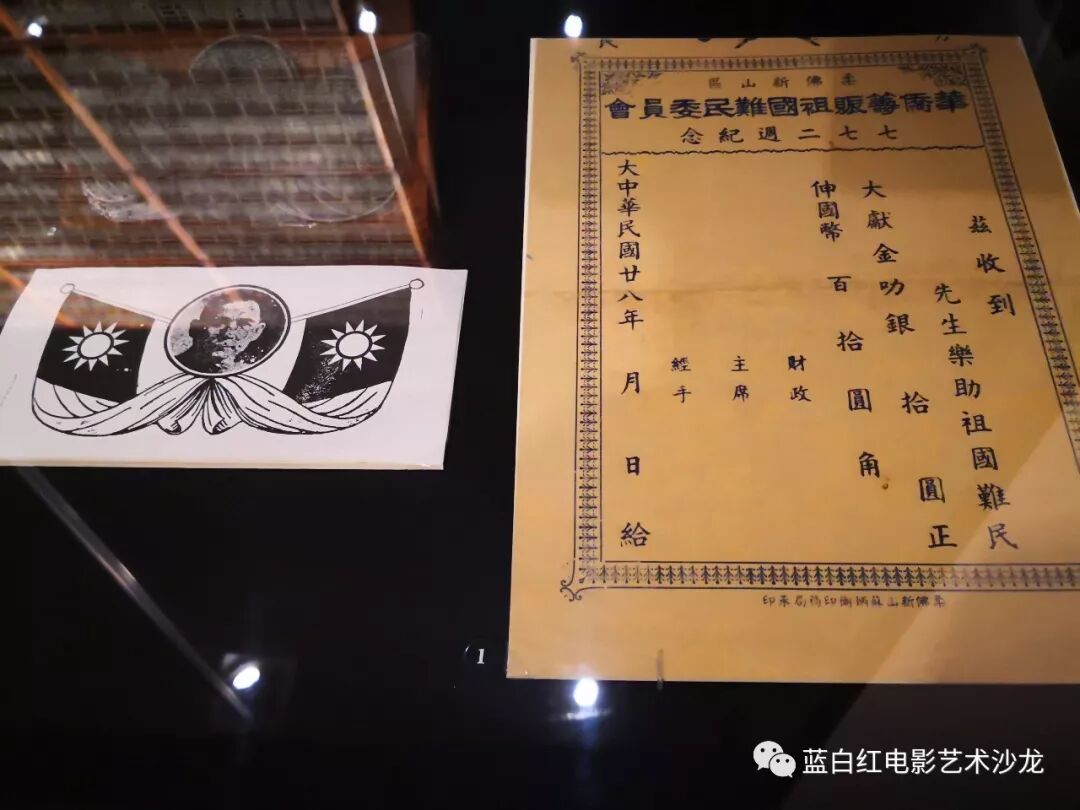 柔佛新山區
華僑籌賑祖國難民委員會
七七二週紀念
茲收到
先生樂助祖國難民
大獻金叻銀 拾 圓正
伸國幣 百 拾 圓 角
財政
主席
經手
大中華民國廿八年 月 日給
柔佛新山蘇 印務局承印
1
蓝白红电影艺术沙龙